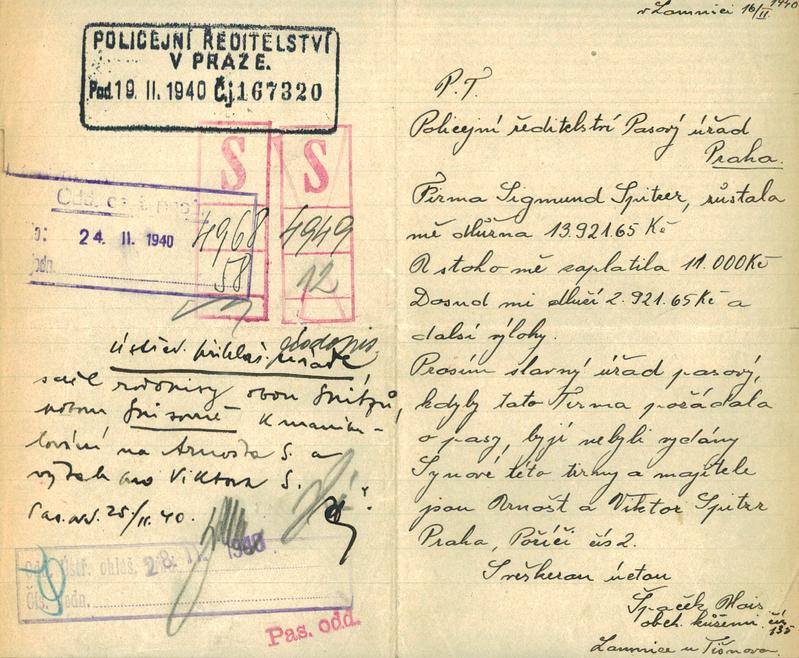 POLICEJNÍ ŘEDITELSTVÍ
V PRAZE.
Pod. 19. II. 1940 Čj. 167320
S S
4968 4949
58 12
24. II. 1940
jedn.
Ústřed. přihlaš.
obou
na Arnošta S. a
výtah pro Viktora S.
Pas. odd. 25./II. 40.
Ústř. ohlaš. 28. II. 1940
Čís. jedn.
Pas. odd.
v Lomnici 16/II 1940
P. T.
Policejní ředitelství Pasový úřad
Praha.
Firma Sigmund Spitzer, zůstala
mě dlužna 13.921.65 Kč
A stoho mě zaplatila 11.000 Kč
Dosud mi dluží 2.921.65 Kč a
další výlohy.
Prosím slavný úřad pasový,
kdyby tato Firma požádala
o pasy, byjí nebyli vydány
Synové této firmy a majitele
jsou Arnošt a Viktor Spitzer
Praha, Poříčí čís 2.
S veškerou úctou
Špaček Alois
obch. kůžemi čís 135
Lomnice u Tišnova.